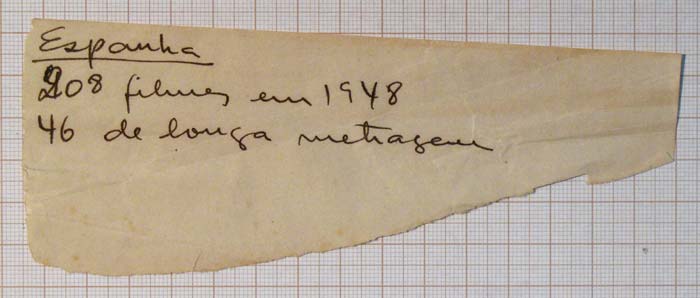 Espanha
208 filmes em 1948
46 de longa metragem